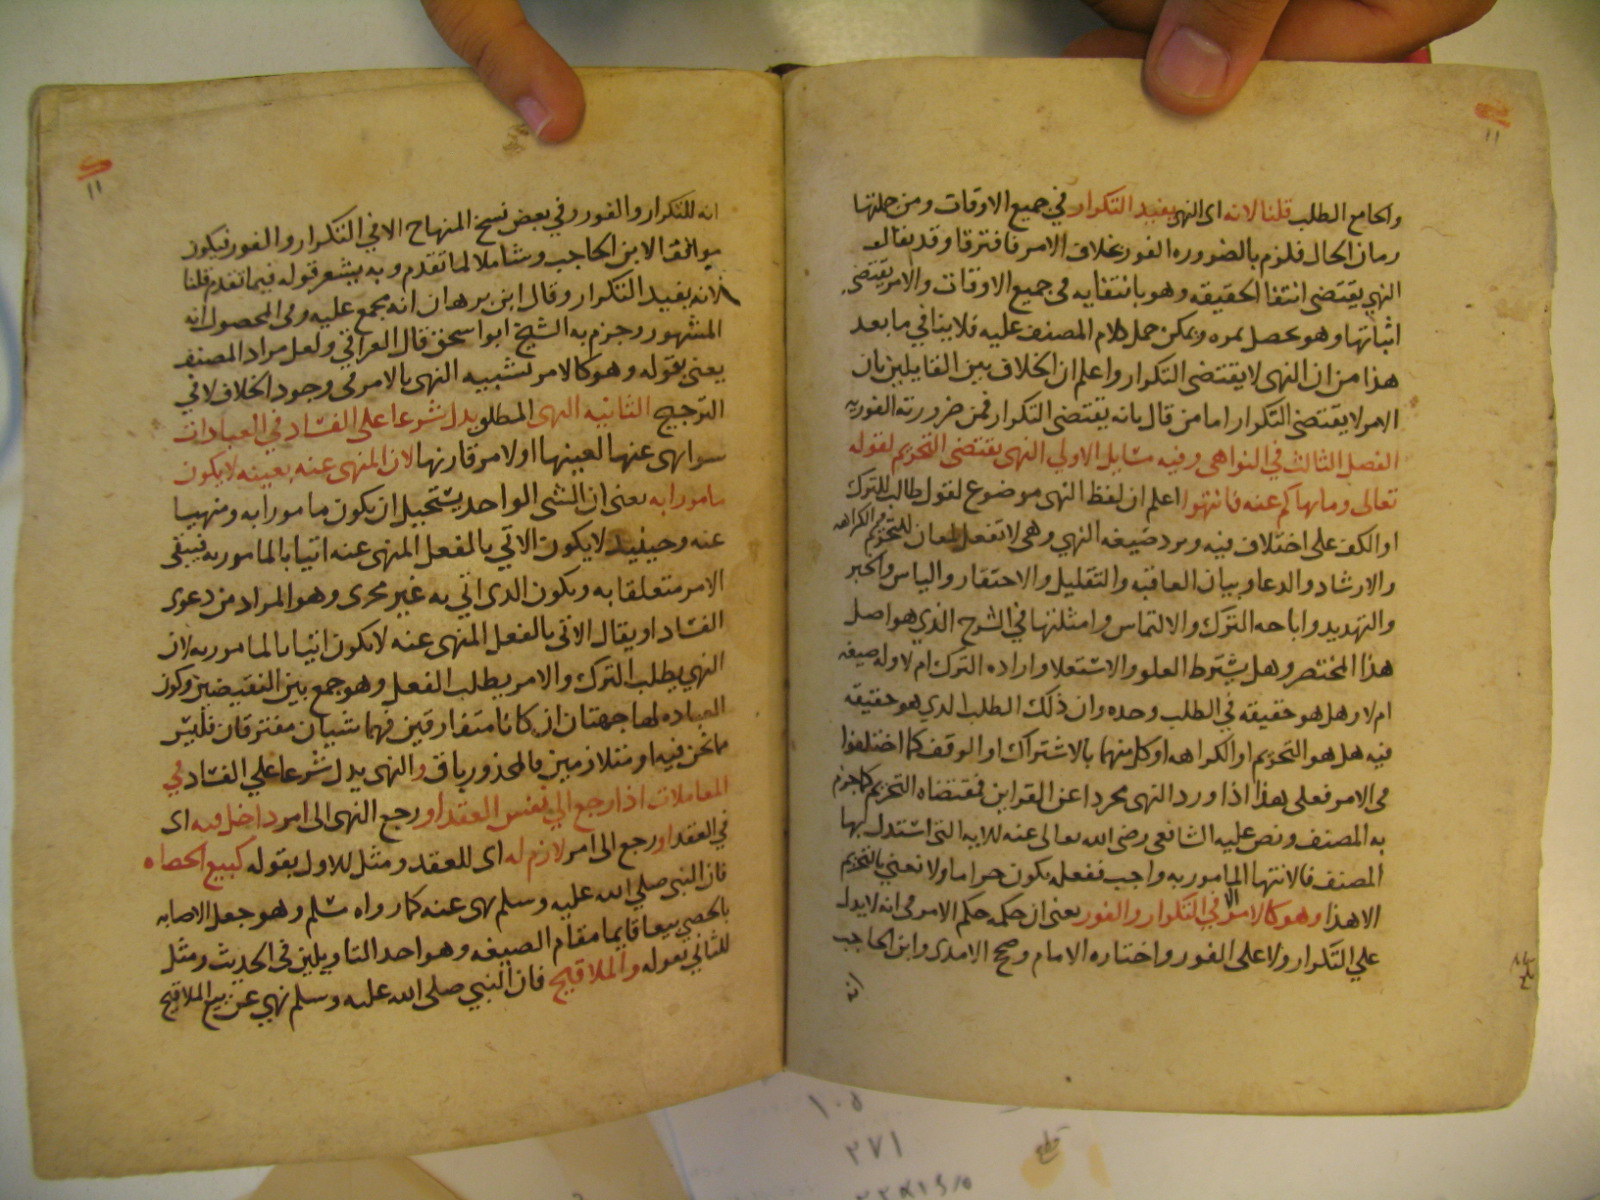 والجامع الطلب قلنا لانه اى النهى يفيد التكرار في جميع الاوقات ومن جملتها
زمان الحال فلزم بالضروره الفور بخلاف الامر فافترقا وقد يقال
النهي يقتضى انتفا الحقيقه وهو بانتفايه فى جميع الاوقات والامر يقتضى
اثباتها وهو يحصل بمره ويمكن حمل كلام المصنف عليه فلا ينافي ما بعد
هذا من ان النهى لا يقتضى التكرار واعلم ان الخلاف بين القايلين بان
الامر لا يقتضى التكرار اما من قال بانه يقتضى التكرار فمن ضرورته الفوريه
الفصل الثالث في النواهى وفيه مسايل الاولي النهى يقتضى التحريم لقوله
تعالى وما نهاكم عنه فانتهوا اعلم ان لفظ النهى موضوع لقول طالب للترك
او الكف على اختلاف فيه وترد صيغه النهي وهى لا تفعل لمعان للتحريم والكراهه
والارشاد والدعا وبيان العاقبه والتقليل والاحتقار والياس والخبر
والتهديد واباحه الترك والالتماس وامثلتها في الشرح الذي هو اصل
هذا المختصر وهل يشترط العلو والاستعلا واراده الترك ام لا وله صيغه
ام لا وهل هو حقيقه في الطلب وحده وان ذلك الطلب الذي هو حقيقه
فيه هل هو التحريم او الكراهه او كل منهما بالاشتراك او الوقف كما اختلفوا
فى الامر فعلى هذا اذا ورد النهى مجردا عن القراين فمقتضاه التحريم كما جزم
به المصنف ونص عليه الشافعى رضى الله تعالى عنه للايه التى استدل بها
المصنف فالانتها المامور به واجب ففعله يكون حراما ولا نعني بالتحريم
الا هذا وهو كالامر الا في التكرار والفور يعنى ان حكمه حكم الامر فى انه لا يدل
علي التكرار ولا على الفور واختاره الامام وصحح الامدى وابن الحاجب
انه
١١
انه للتكرار والفور وفي بعض نسخ المنهاج الا في التكرار والفور فيكون
موافقا لابن الحاجب وشاملا لما تقدم وبه يشعر قوله فيما تقدم قلنا
لانه يفيد التكرار وقال ابن برهان انه مجمع عليه وفى المحصول انه
المشهور وجزم به الشيخ ابو اسحق قال العراقي ولعل مراد المصنف
يعنى بقوله وهو كالامر تشبيه النهى بالامر فى وجود الخلاف لا في
الترجيح الثانيه النهى المطلق يدل شرعا على الفساد في العبادات
سوا نهى عنها لعينها او لامر قارنها لان المنهى عنه بعينه لا يكون
مامورا به يعنى ان الشى الواحد يستحيل ان يكون مامورا به ومنهيا
عنه وحينيذ لا يكون الاتي بالفعل المنهى عنه اتيا بالمامور به فيبقى
الامر متعلقا به ويكون الذى اتي به غير مجزى وهو المراد من دعوى
الفساد او يقال الاتى بالفعل المنهى عنه لا يكون اتيا بالمامور به لان
النهي يطلب الترك والامر يطلب الفعل وهو جمع بين النقيضين وكون
العباده لها جهتان ان كانا متفارقين فهما شيان مفترقان فليس
مما نحن فيه او متلازمين فالمحذور باق والنهى يدل شرعا علي الفساد في
المعاملات اذا رجع الي نفس العقد او رجع النهى الى امر داخل فيه اى
في العقد او رجع الى امر لازم له اى للعقد ومثل للاول بقوله كبيع الحصاه
فان النبى صلى الله عليه وسلم نهى عنه كما رواه مسلم وهو جعل الاصابه
بالحصي بيعا قايما مقام الصيغه وهو احد التاويلين فى الحديث ومثل
للثاني بقوله والملاقيح فان النبي صلى الله عليه وسلم نهي عن بيع الملاقيح
١١
١٠٥
٢٧١